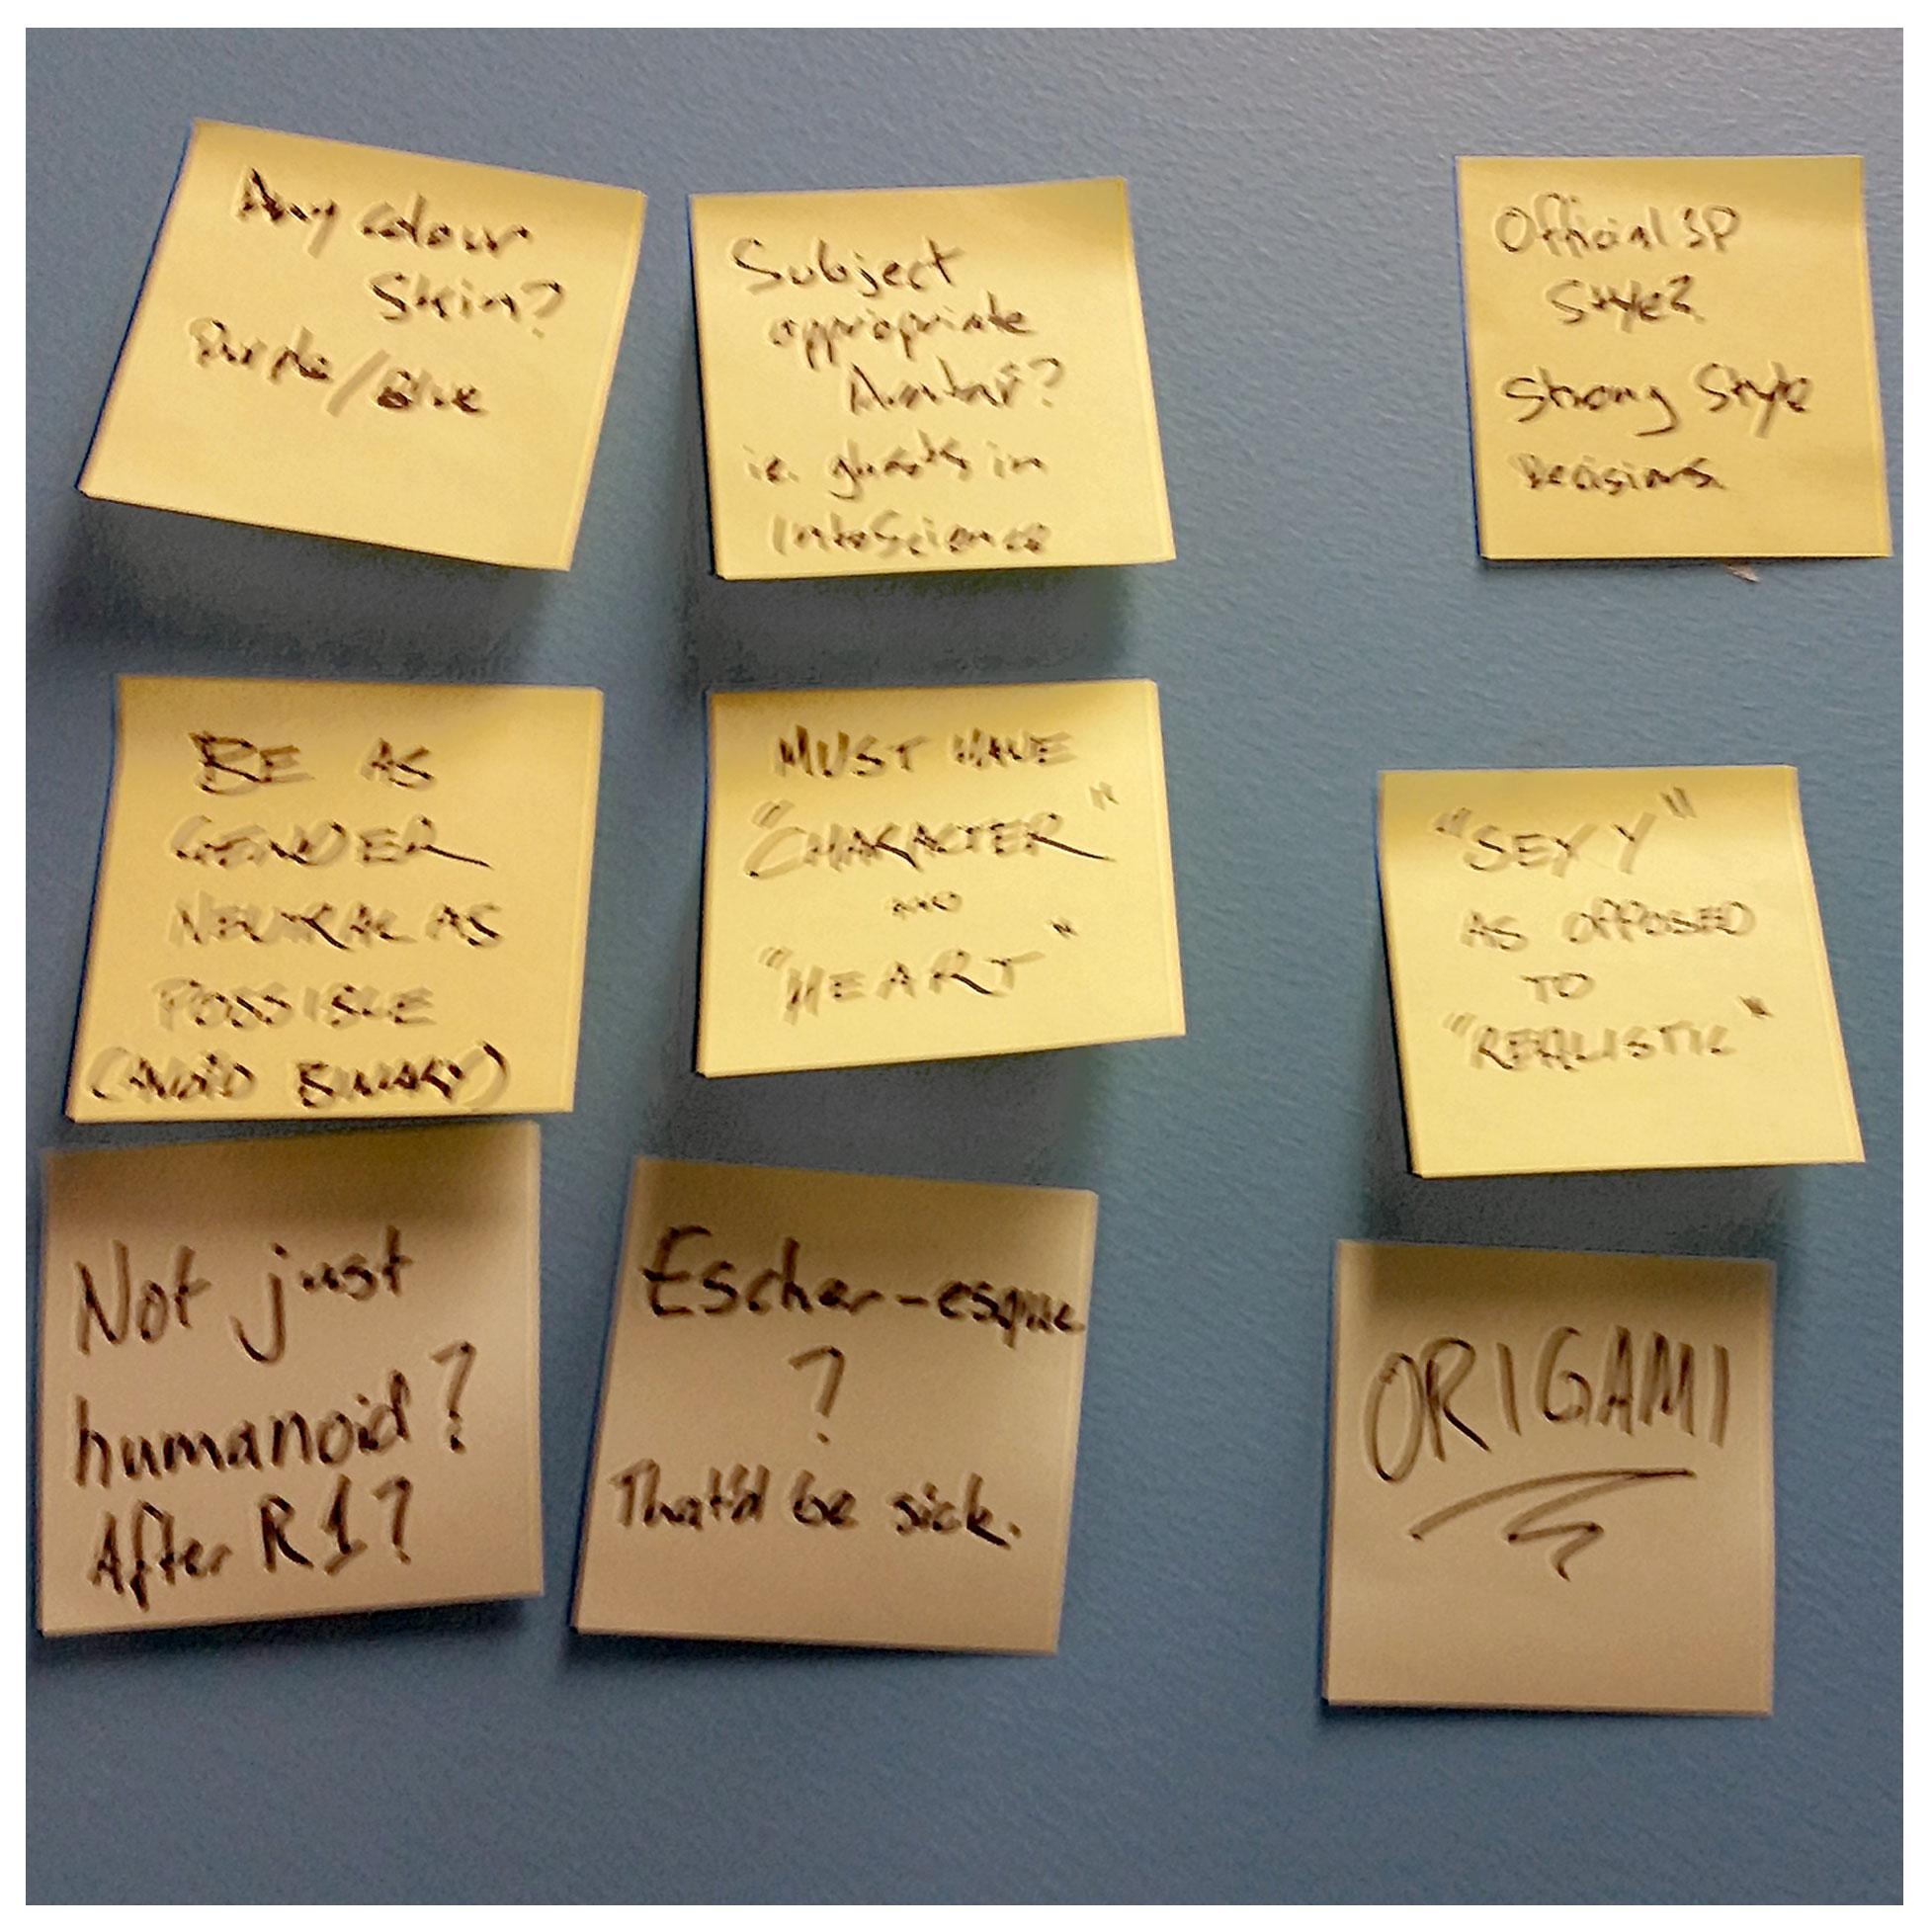 Any colour
Skin?
Purple/Blue
Subject
appropriate
Avatar?
ie. ghosts in
IntoScience
Official 3P
Style?
Strong Style
Decisions.
BE AS
GENDER
NEUTRAL AS
POSSIBLE
(AVOID BINARY)
MUST HAVE
"CHARACTER"
AND
"HEART"
"SEXY"
AS OPPOSED
TO
"REALISTIC"
Not just
humanoid?
After R1?
Escher-esque
?
That'd be sick.
ORIGAMI